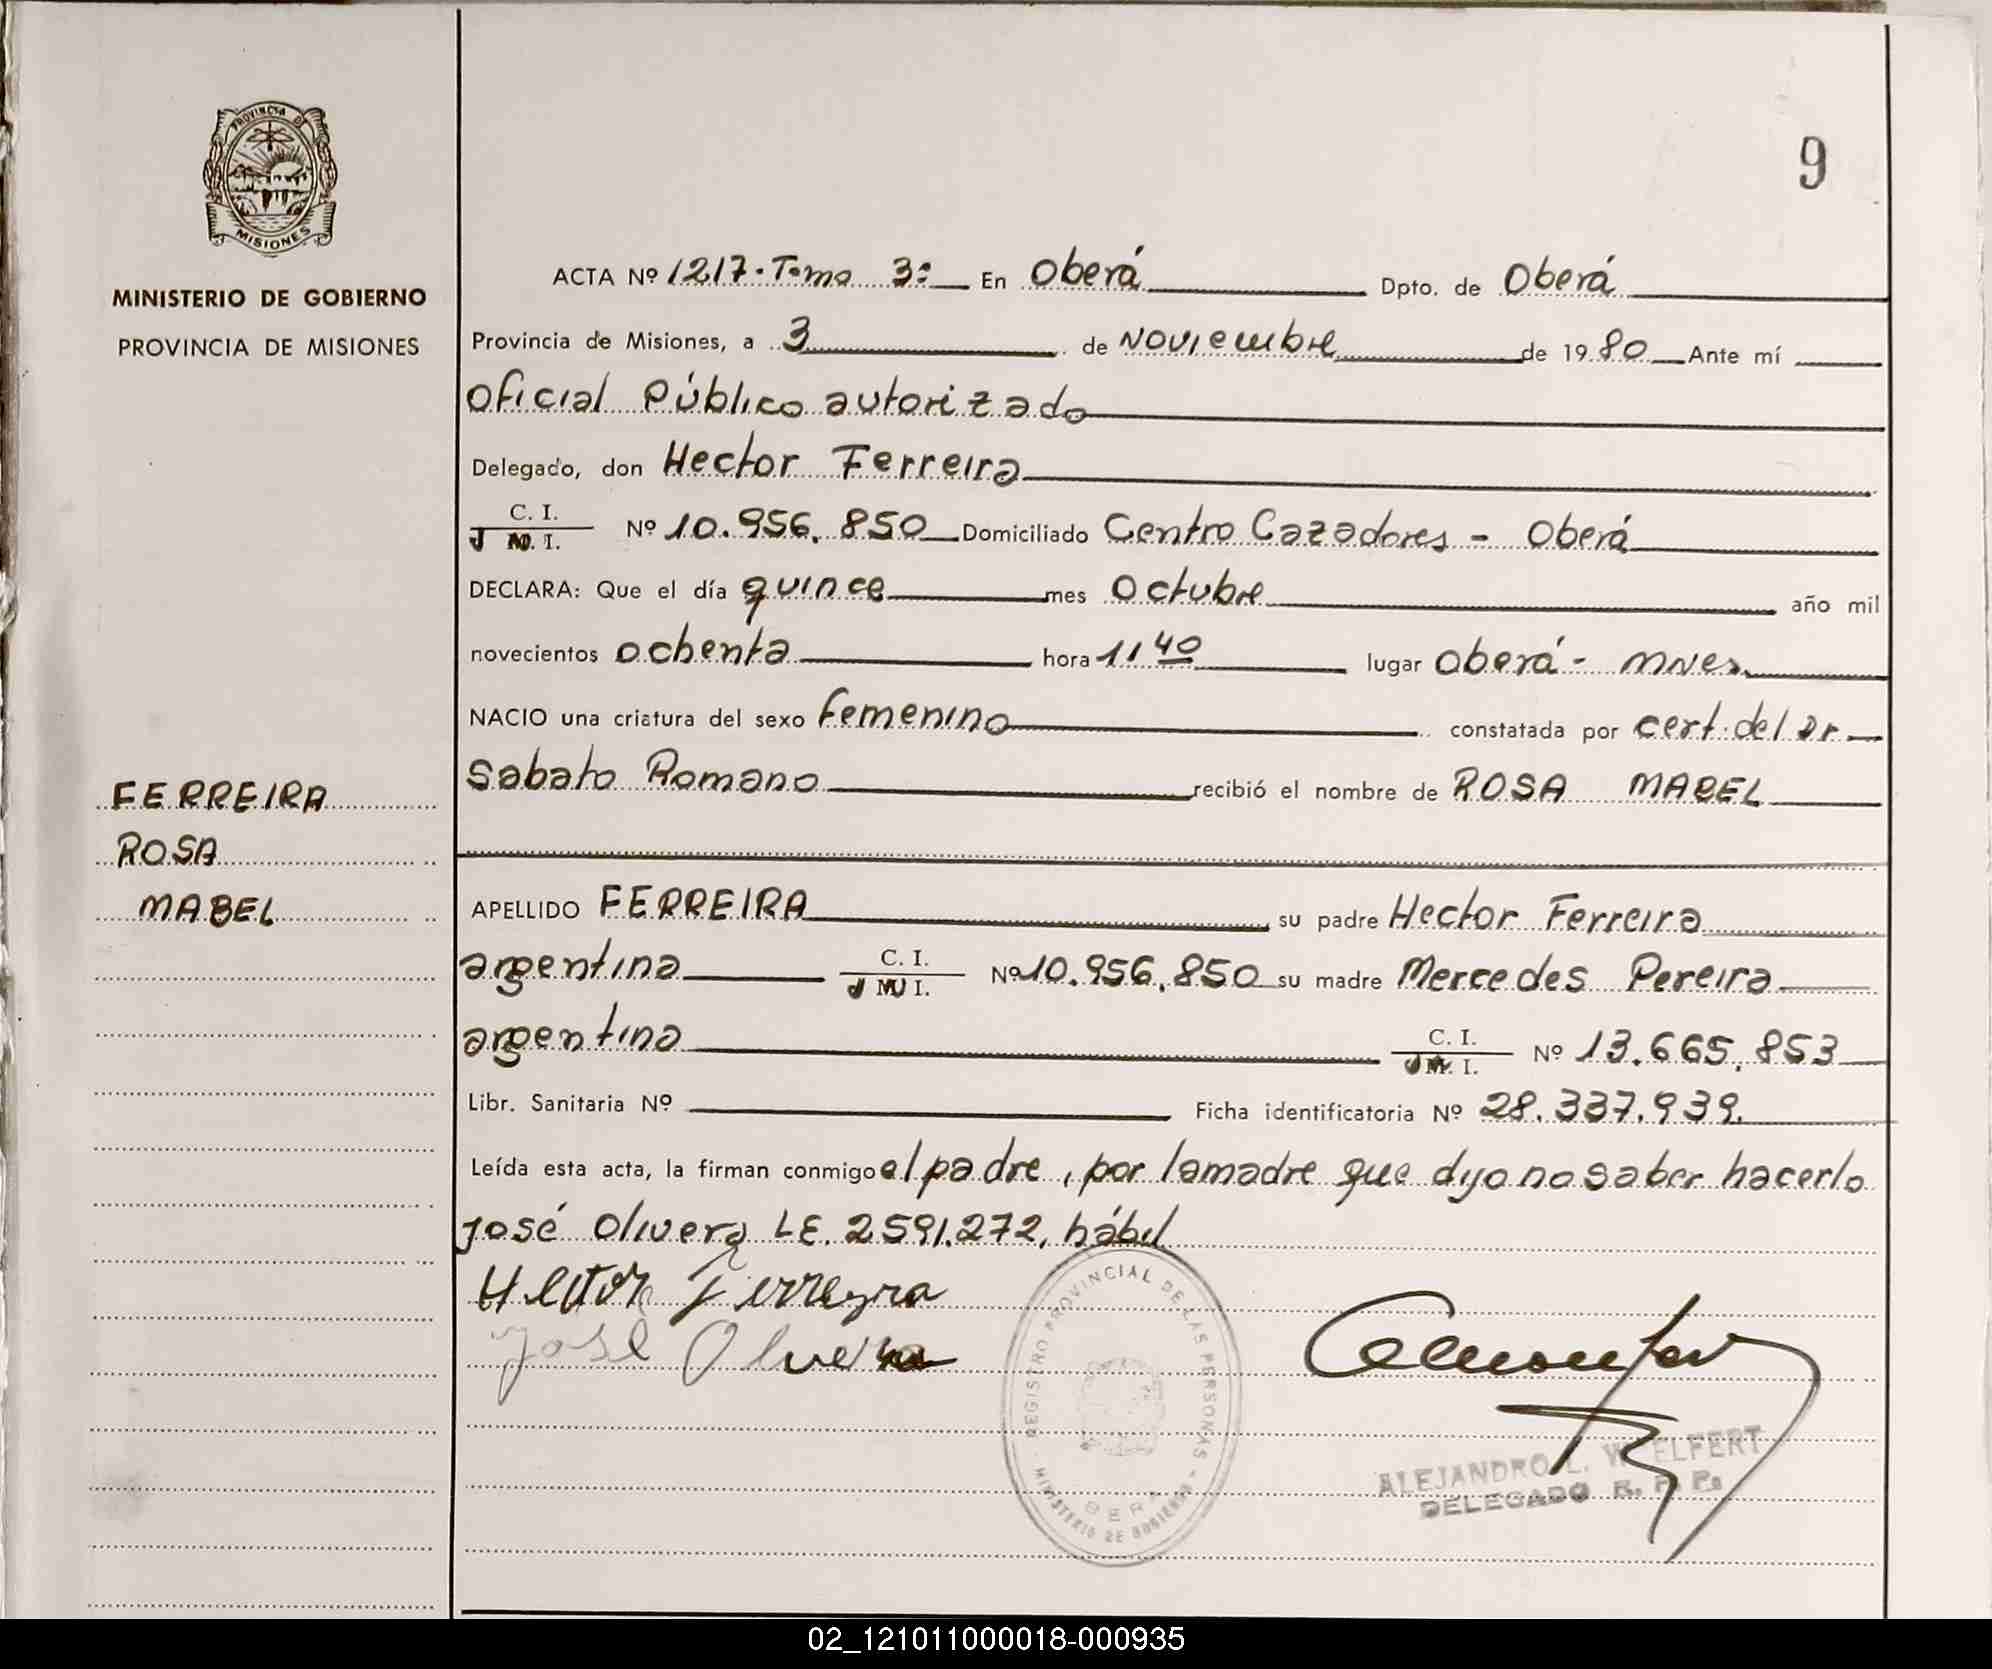 PROVINCIA D
MISIONES
MINISTERIO DE GOBIERNO
PROVINCIA DE MISIONES
FERREIRA
ROSA
MABEL
9
ACTA Nº 1217. Tomo 3º En Oberá Dpto. de Oberá
Provincia de Misiones, a 3 de Noviembre de 1980 Ante mí
Oficial Público autorizado
Delegado, don Hector Ferreira
C. I.
M. I. Nº 10.956.850 Domiciliado Centro Cazadores - Oberá
DECLARA: Que el día quince mes Octubre año mil
novecientos ochenta hora 11 40 lugar Oberá - Mnes.
NACIO una criatura del sexo femenino constatada por cert. del Dr.
Sabato Romano recibió el nombre de ROSA MABEL
APELLIDO FERREIRA su padre Hector Ferreira
argentina C. I. M. I. Nº 10.956.850 su madre Mercedes Pereira
argentina C. I. M. I. Nº 13.665.853
Libr. Sanitaria Nº Ficha identificatoria Nº 28.337.939.
Leída esta acta, la firman conmigo el padre, por la madre que dijo no saber hacerlo
José Olivera LE. 2591.272, hábil
Hector Ferreyra
José Olivera
REGISTRO PROVINCIAL DE LAS PERSONAS - MINISTERIO DE GOBIERNO
OBERA
ALEJANDRO L. WELFERT
DELEGADO R. P. P.
02_121011000018-000935